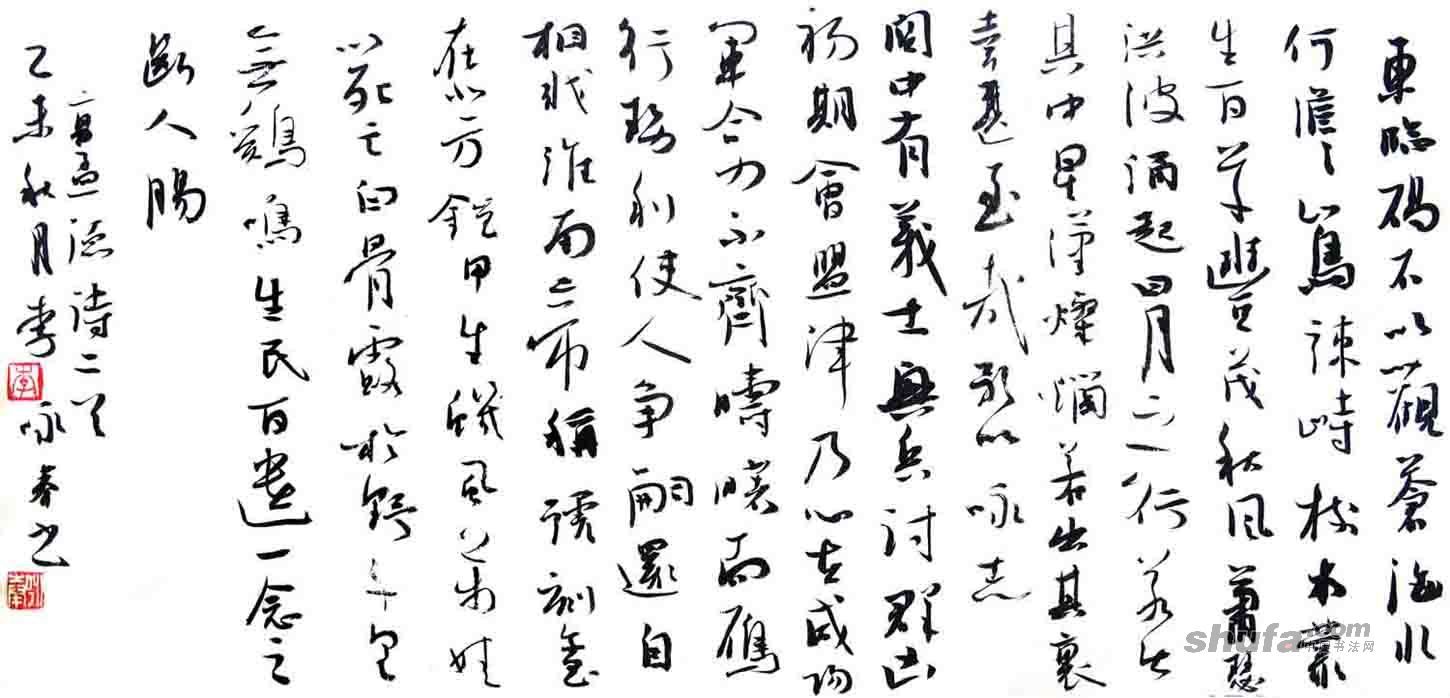 東臨碣石以觀蒼海水
何澹々山島竦峙樹木叢
生百草豐茂秋風蕭瑟
洪波涌起日月之行若出
其中星漢燦爛若出其裏
幸甚至哉歌以咏志
關中有義士興兵討群凶
初期會盟津乃心在咸陽
軍合力不齊躊躇而雁
行勢利使人爭嗣還自
相戕淮南弟稱號刻璽
在北方鎧甲生蟣虱萬姓
以死亡白骨露於野千里
無雞鳴生民百遺一念之
斷人腸
曹孟德詩二首
乙未秋月李咏春書
李
shufa.com
中国书法网